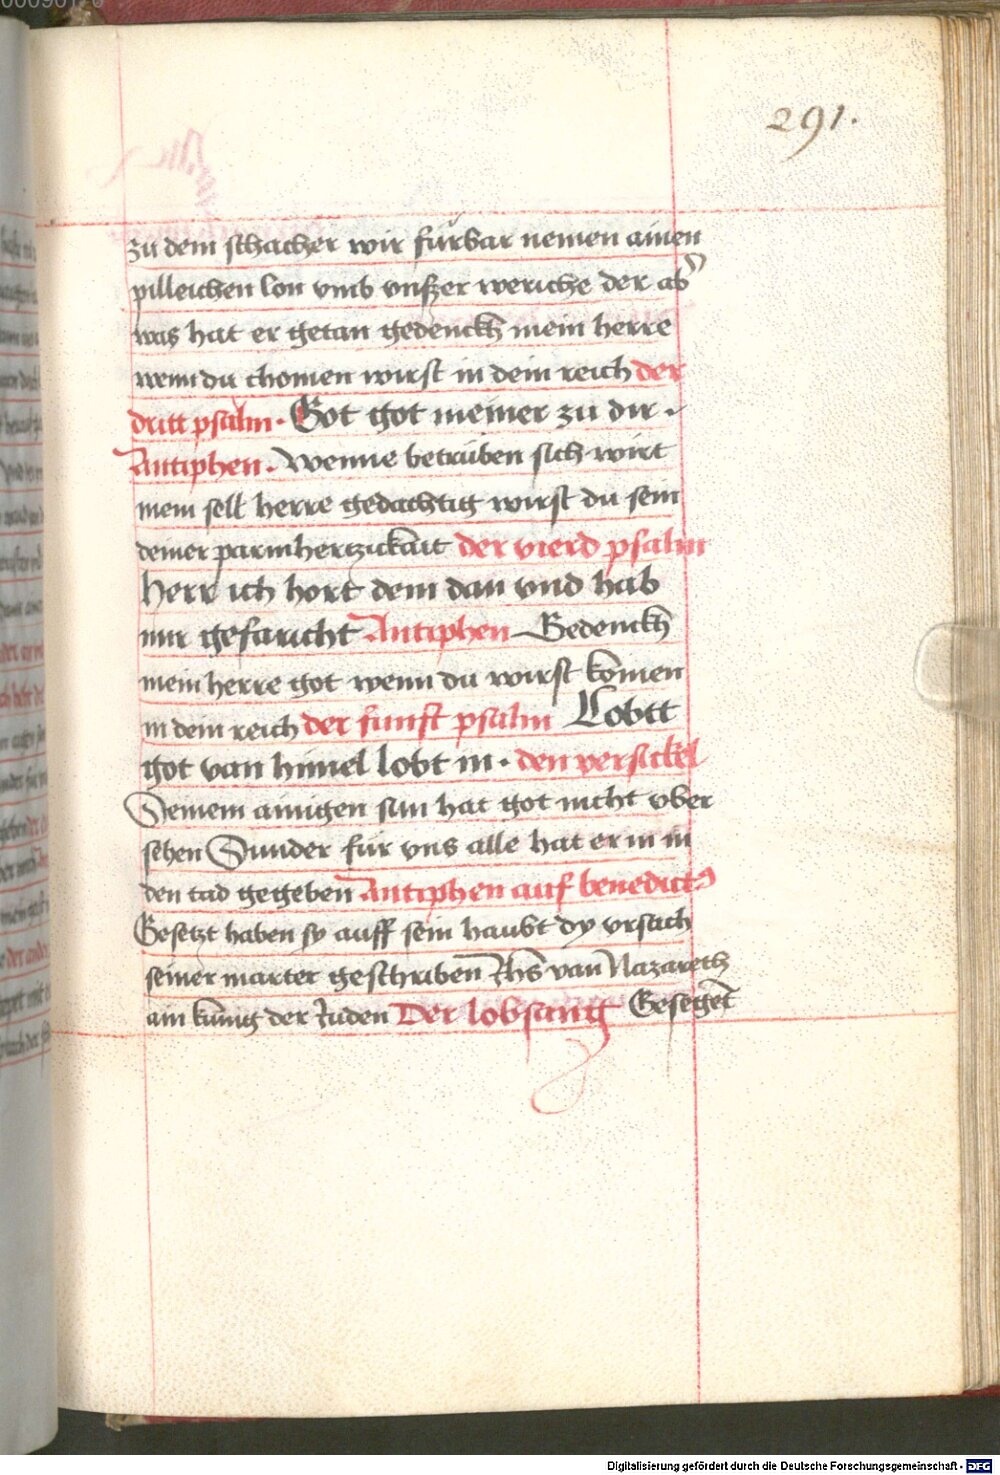 291.
zu dem schacher wir fürbar nemen ainen
pilleichen lon vmb vnßer weriche der ab
was hat er getan gedenckh mein herre
wenn du chomen wirst in dein reich der
dritt psalm. Got got meiner zu dir.
Antiphen. Wenne betrüben sich wirt
mein sell herre gedachtig wirst du sein
deiner parmhertzickait der vierd psalm
Herr ich hort dein dan vnd hab
mir gefaricht Antiphen Gedenckh
mein herre got wenn du wirst komen
in dein reich der funft psalm Lobtt
got van himel lobt in. den versickel
Seinem ainigen sun hat got nicht vber
sehen Sunder für vns alle hat er in in
den tad gegeben Antiphen auf benedict
Gesetzt haben sy auff sein haubt dy vrsach
seiner marter geschriben Jhs van Nazareth
ain kunig der Juden Der lobsang Gesegent
Digitalisierung gefördert durch die Deutsche Forschungsgemeinschaft - DFG